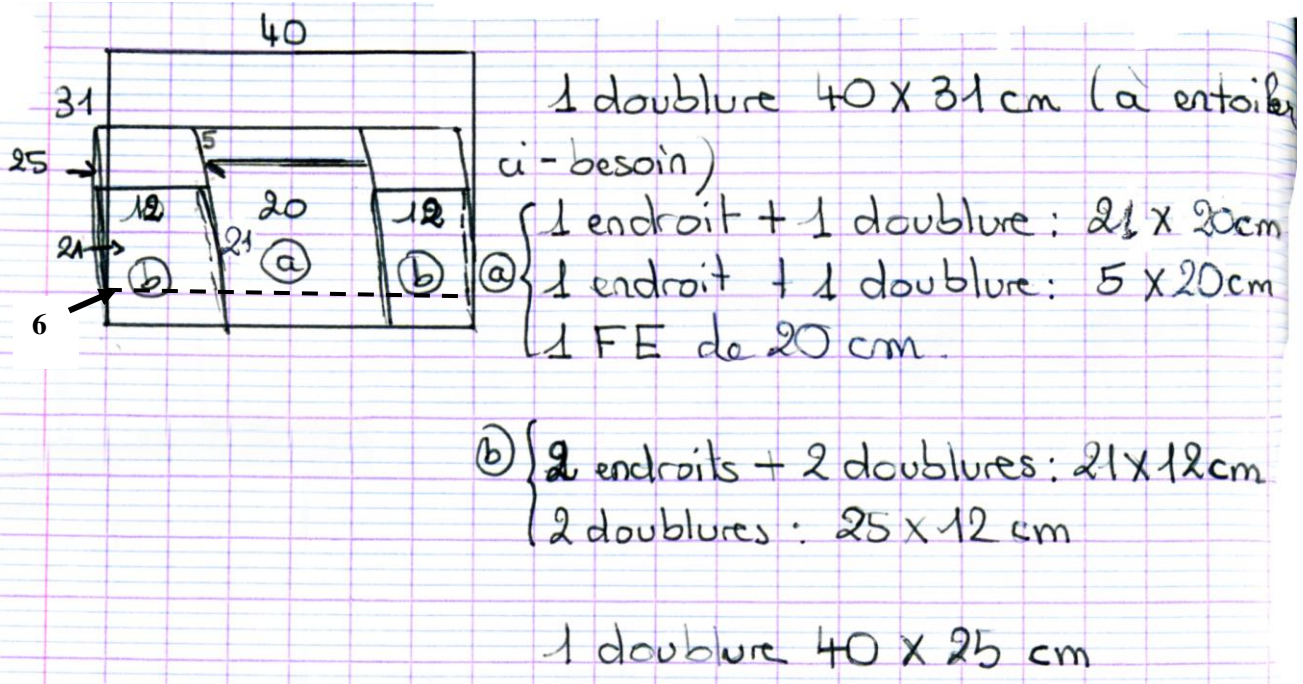 40
31
25
5
12
20
12
21
21
a
b
b
6
1 doublure 40 X 31 cm (à entoiler
ci-besoin)
a
1 endroit + 1 doublure : 21 X 20cm
1 endroit + 1 doublure : 5 X 20cm
1 FE de 20 cm.
b
2 endroits + 2 doublures : 21 X 12 cm
2 doublures : 25 X 12 cm
1 doublure 40 X 25 cm